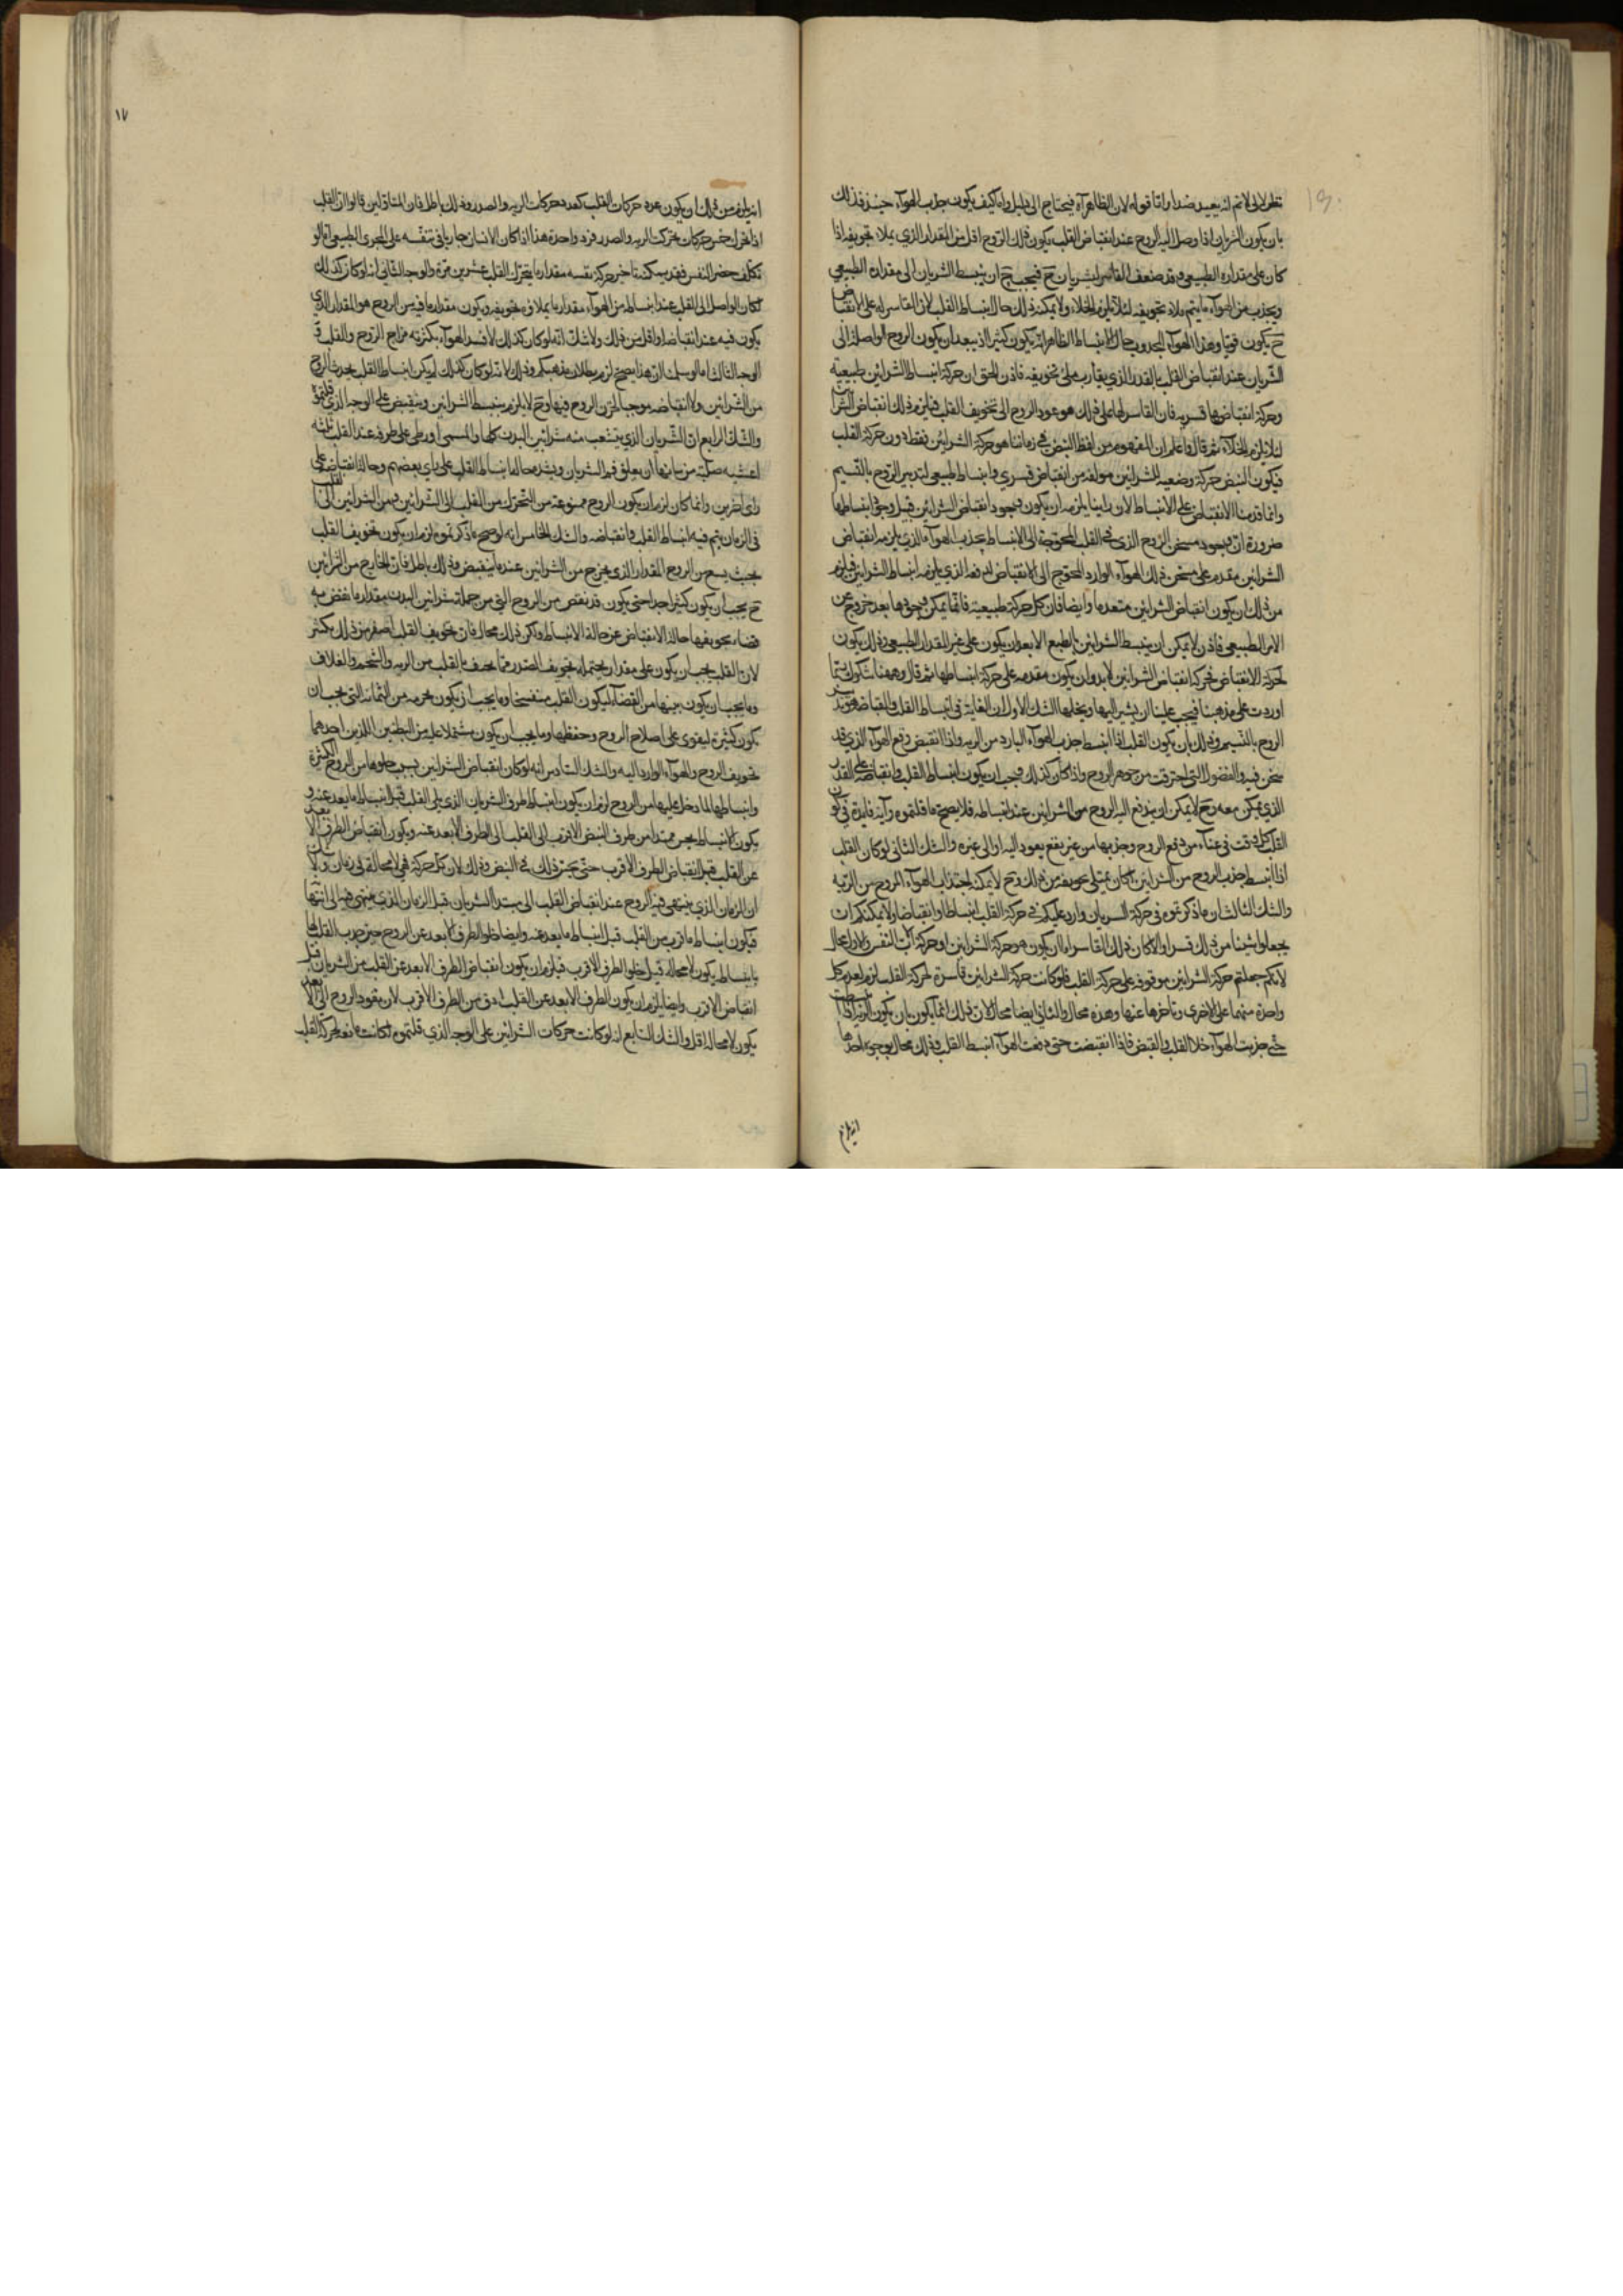 بان يكون الشريان اذا وصل اليه الروح عند انقباض القلب يكون ذلك الروح اقل من المقدار الذي يملاء تجويفه اذا
كان على مقداره الطبيعي وقد ضعف القاسر للشريان ح فيجب ح ان ينبسط الشريان الى مقداره الطبيعي
ويجذب من الهوآء ما يتم به ملاء تجويفه لئلا يلزم الخلاء ولا يمكنه ذلك حال انبساط القلب لان القاسر له على الانقباض
ح يكون قويا وهذا الهوآء المجذوب حال الانبساط الظاهر انه لا يكون كثيرا اذ يبعد ان يكون الروح الواصلة الى
الشريان عند انقباض القلب بالقدر الذي يقارب ملئ تجويفه فاذن الحق ان حركة انبساط الشرائين طبيعية
وحركة انقباضها قسرية فان القاسر لها على ذلك هو عود الروح الى تجويف القلب فيلزم ذلك انقباض الشرائين
لئلا يلزم الخلآء ثم قال واعلم ان المفهوم من لفظ النبض في زماننا هو حركة الشرائين فقط دون حركة القلب
فيكون النبض حركة وضعية للشرائين مولفة من انقباض قسري وانبساط طبيعي لتدبير الروح بالنسيم
وانما قدمنا الانقباض على الانبساط لان راينا يلزمه ان يكون وجود انقباض الشرائن قبيل وجود انبساطها
ضرورة ان وجود مسخن الروح الذي في القلب المحوجة الى الانبساط يجذب الهوآء الذي يلزمه انقباض
الشرائين مقدم على مسخن ذلك الهوآء الوارد المحوج الى الانقباض لدفعه الذي يلزمه انبساط الشرائين فيلزم
من ذلك ان يكون انقباض الشرائين متقدما وايضا فان كل حركة طبيعية فانما يمكن وجودها بعد خروج عن
الامر الطبيعي فاذن لا يمكن ان ينبسط الشرائين بالطبع الا بعد ان يكون على غير المقدار الطبيعي وذلك يكون
لحركة الانقباض فحركة انقباض الشرائين لابد وان يكون مقدمة على حركة انبساطها ثم قال وههنا شكوك ربما
اوردت على مذهبنا فيجب علينا ان نشير اليها ونحلها الشك الاول ان الغاية في انبساط القلب وانقباضه هو تدبير
الروح بالنسيم وذلك بان يكون القلب اذا انبسط جذب الهوآء البارد من الرية واذا انقبض دفع الهوآء الذي قد
سخن فيه والفضول التي احترقت من جوهر الروح واذا كان كذلك فيجب ان يكون انبساط القلب وانقباضه على القدر
الذي يمكن معه وح لا يمكن ان يندفع اليه الروح من الشرائين عند انبساطه فلا يصح ما قلتموه
القلب كل وقت في عنآء من دفع الروح وجذبها من غير نفع يعود اليه او الى غيره والشك الثاني لو كان القلب
اذا انبسط جذب الروح من الشرائين لكان يمتلى تجويفه من ذلك وح لا يمكنه اجتذاب الهوآء المروح من الرية
والشك الثالث ان ما ذكرتموه في حركة الشريان وارد عليكم في حركة القلب انبساطا وانقباضا ولا يمكنكم ان
يجعلوا شيئا من ذلك قسرا والا لكان ذلك القاسر اما ان يكون هو حركة الشرائين او حركة آلات النفس والاول محال
لانكم جعلتم حركة الشرائين موقوفة على حركة القلب فلو كانت حركة الشرائين قاسرة لحركة القلب لزم تقدم كل
واحدة منهما على الاخرى وتاخرها عنها وهذه محال والثاني ايضا محال لان ذلك انما يكون بان يكون الرية اذا انبسطت
حتى جذبت الهوآء خلا القلب وانقبض فاذا انقبضت حتى دفعت الهوآء انبسط القلب وذلك محال بوجوه احدها
انه يلزم
١٧
انه يلزم من ذلك ان يكون عدد حركات القلب كعدد حركات الرية والصدر وذلك باطل فان المتاولين قالوا ان القلب
اذا تحرك خمس حركات تحركت الرية والصدر فرد واحدة هذا اذا كان الانسان جاريا في تنفسه على المجرى الطبيعي اما لو
تكلف حصر النفس فقد يمكنه تاخير حركة نفسه مقدار ما يتحرك القلب عشرين مرة والوجه الثاني انه لو كان كذلك
لكان الواصل الى القلب عند انبساطه من الهوآء مقدار ما يملاء تجويفه ويكون مقدار ما فيه من الروح هو المقدار الذي
يكون فيه عند انقباضه او اقل من ذلك ولا شك انه لو كان كذلك لافسد الهوآء بكثرته مزاج الروح والقلب
الوجه الثالث اما لو سلمت ان هذا يصح لزم بطلان مذهبكم وذلك لانه لو كان كذلك لم يكن انبساط القلب يجذب الروح
من الشرائين ولا انقباضه موجبا لخزن الروح فيها وح لا يلزم ينبسط الشرائين وينقبض على الوجه الذي قلتموه
والشك الرابع ان الشريان الذي يتشعب منه شرائين البدن كلها والمسمى اورطي على طرفه عند القلب ثلثة
اغشية صلبة من شانها ان يغلق فم الشريان ويشد حالة انبساط القلب على راي بعضهم وحالة انقباضه على
راى اخرين وانما كان لزم ان يكون الروح ممنوعة من التحرك من القلب الى الشرائين ومن الشرائين الى القلب
في الزمان يتم فيه انبساط القلب وانقباضه والشك الخامس انه لو صح ما ذكرتموه لزم ان يكون تجويف القلب
بحيث يسع من الروح المقدار الذي يخرج من الشرائين عند ما ينقبض وذلك باطل فان الخارج من الشرائين
ح يجب ان يكون كثيرا جدا حتى يكون قد نقص من الروح التي من جملة شرائين البدن مقدار ما نقص به
فضاء تجويفها حالة الانقباض عن حالة الانبساط ولكن ذلك محال فان تجويف القلب اصغر من ذلك بكثير
لان القلب يجب ان يكون على مقدار يحتمله تجويف الصدر مما يحيط بالقلب من الرية والشحم والغلاف
وما يجب ان يكون بينها من الفضآء ليكون القلب متفسحا وما يجب ان يكون جرمه من الثخانة التي يجب ان
يكون كثيرة ليقوى على اصلاح الروح وحفظها وما يجب ان يكون مشتملا عليه من البطنين اللذين احدهما
تجويف الروح والهوآء الوارد اليه والشك السادس انه لو كان انقباض الشرائين بسبب خلوها من الروح الكثيرة
وانبساطها لما دخل عليها من الروح لزم ان يكون انبساط طرف الشريان الذي يلي القلب قبل انبساط ما بعد عنه و
يكون الانبساط يحس ممتدا من طرف النبض الاقرب الى القلب الى الطرف الابعد عنه ويكون انقباض الطرف الابعد
عن القلب قبل انقباض الطرف الاقرب حتى يحس ذلك في النبض وذلك لان كل حركة فهي لا محالة في زمان
ان الزمان الذي ينتهى فيه الروح عند انقباض القلب الى مبتدا الشريان قبل الزمان الذي ينتهى فيه الى انتهائها
فيكون انبساط ما قرب من القلب قبل انبساط ما بعد عنه وايضا خلو الطرف الابعد عن الروح حين جذب القلب لها
بانبساطه يكون لا محالة قبل خلو الطرف الاقرب فيلزم ان يكون انقباض الطرف الابعد عن القلب من الشريان قبل
انقباض الاقرب وايضا يلزم ان يكون الطرف الابعد عن القلب ادق من الطرف الاقرب لان نفوذ الروح الى الابعد
يكون لا محالة اقل والشك السابع انه لو كانت حركات الشرائين على الوجه الذي قلتموه لكانت تابعة لحركة القلب